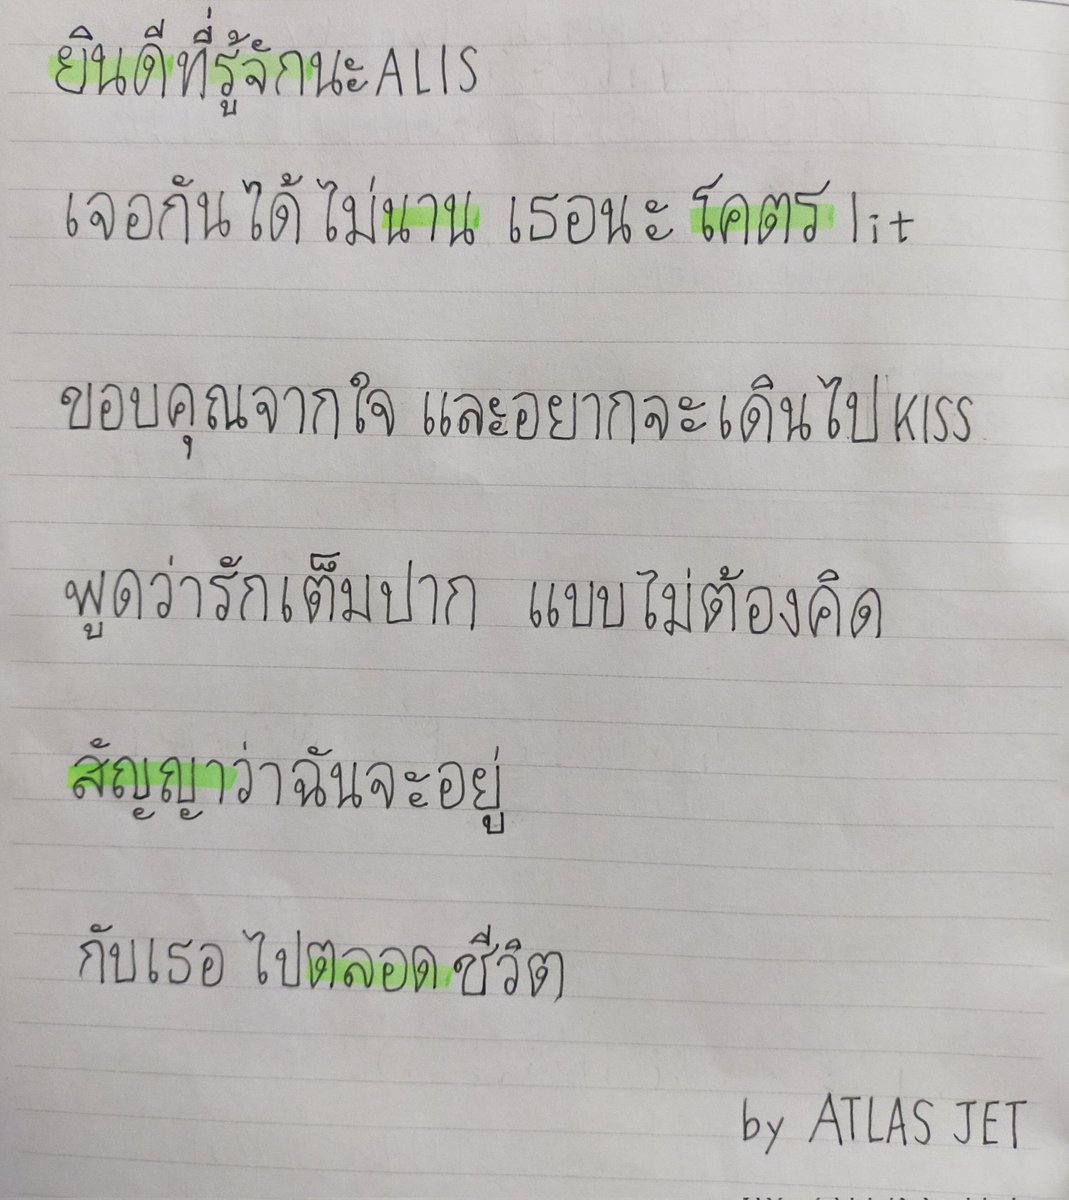 ยินดีที่รู้จักนะ ALIS
เจอกันได้ไม่นาน เธอนะ โคตร lit
ขอบคุณจากใจ และอยากจะเดินไป KISS
พูดว่ารักเต็มปาก แบบไม่ต้องคิด
สัญญาว่าฉันจะอยู่
กับเธอ ไปตลอดชีวิต
by ATLAS JET